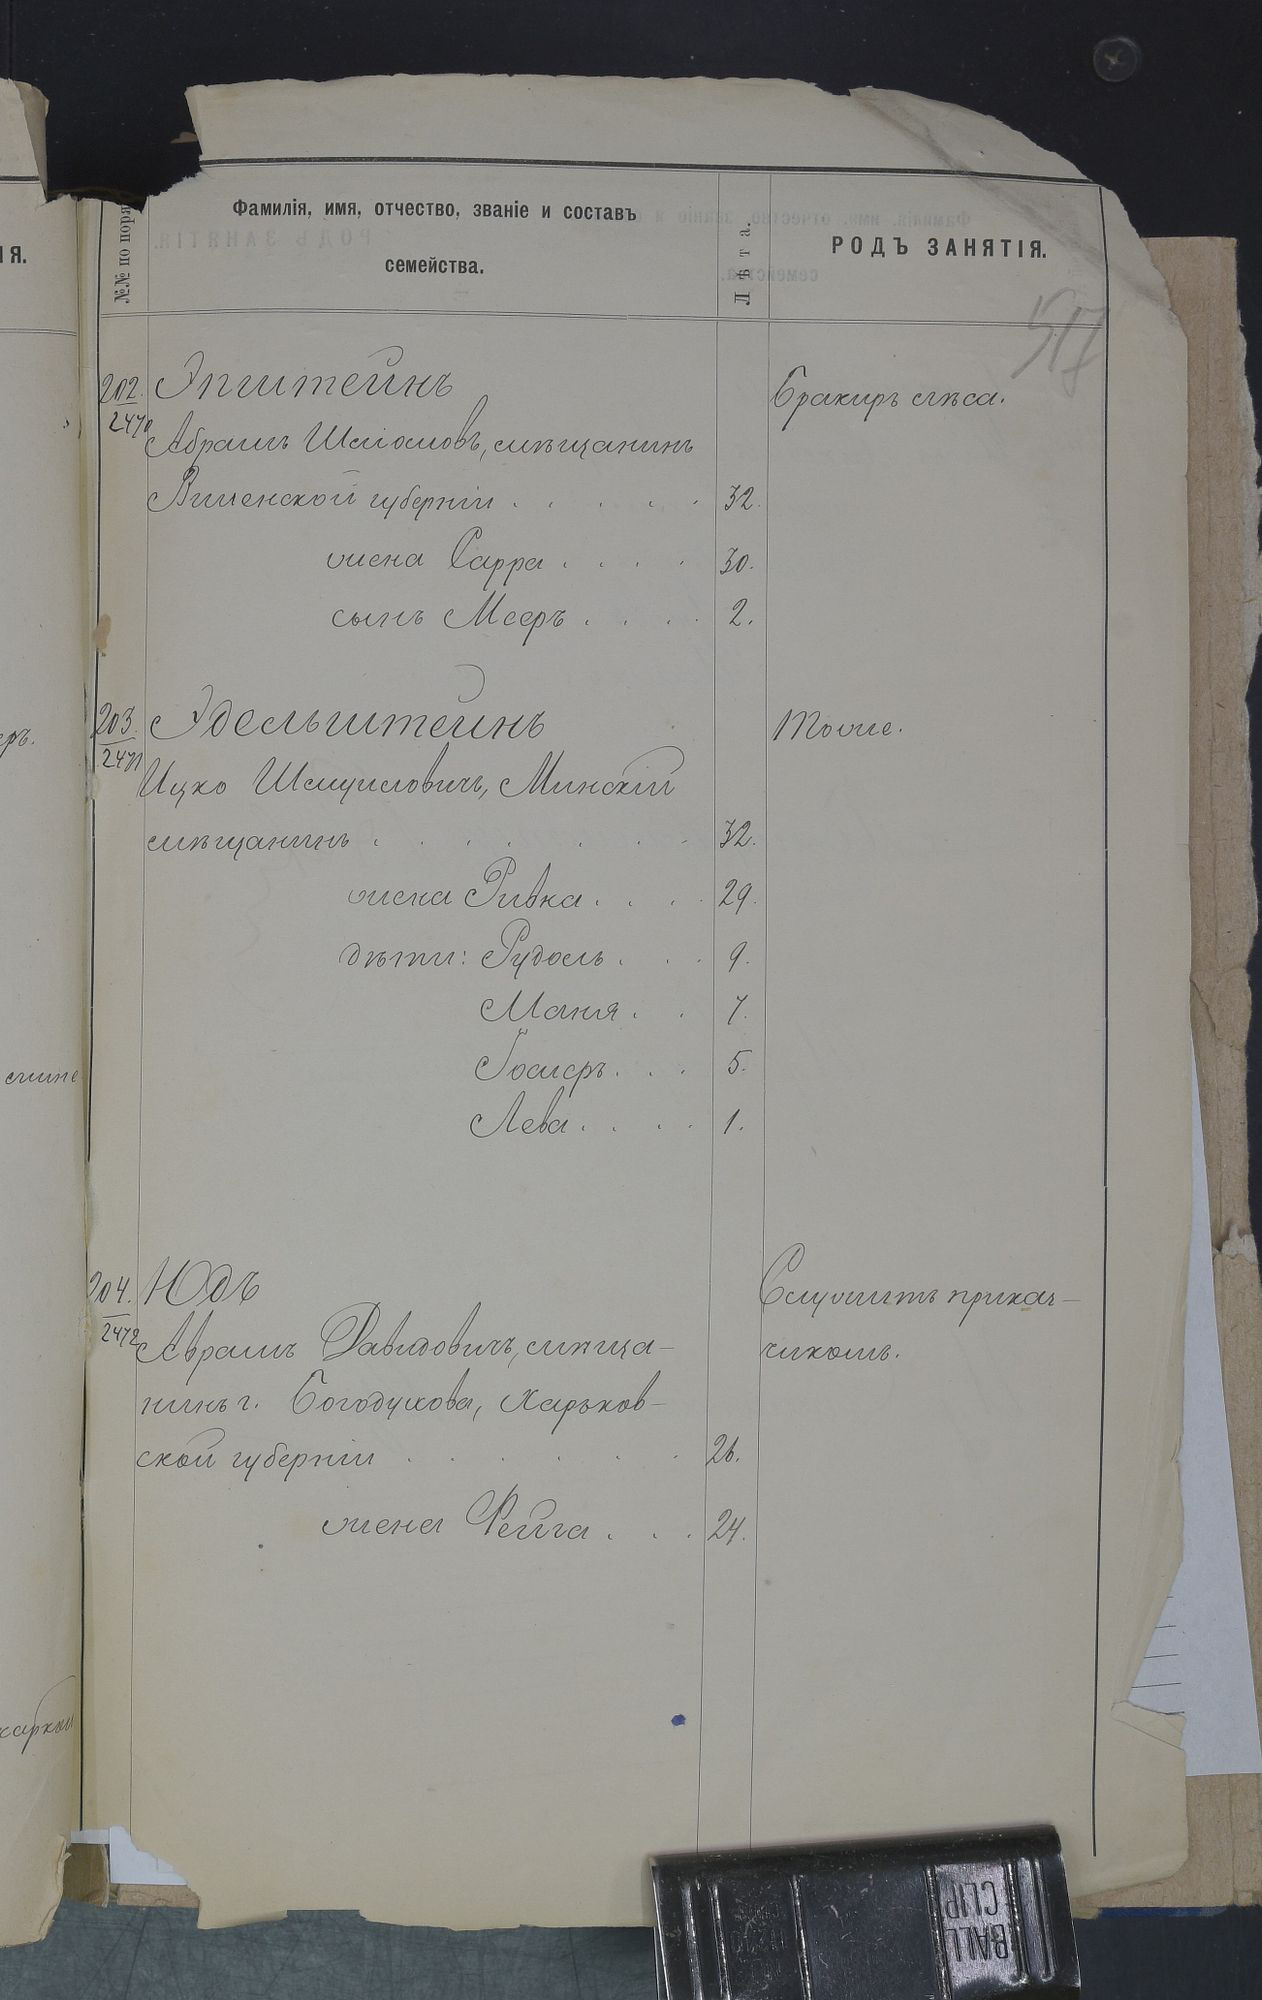 ія.
№№ по поря
Фамилія, имя, отчество, званіе и составъ
семейства.
Лѣта.
РОДЪ ЗАНЯТІЯ.
517
202.
2470
Эпштейнъ
Бракиръ лѣса.
Абрамъ Шліомовъ, мѣщанинъ
Виленской губерніи . . . . . 32.
жена Сарра . . . . 30.
сынъ Мееръ . . . . 2.
203.
2471
Эдельштейнъ
Тоже.
Ицко Шмуиловичъ, Минскій
мѣщанинъ . . . . . . . 32.
жена Ривка . . . . 29.
дѣти: Рудоль . . . 9.
Маня . . 7.
Госиеръ . . . 5.
Лева . . . . 1.
204.
2472
Юдъ
Служитъ приказ-
Аврамъ Давидовичъ, мѣща-
чикомъ.
нинъ г. Богодухова, Харьков-
ской губерніи . . . . . . 26.
жена Фейга . . . 24.
BALL
CLIP